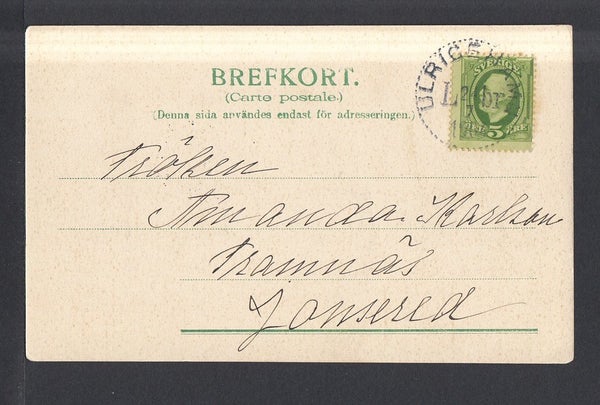 BREFKORT.
(Carte postale.)
(Denna sida användes endast för adresseringen.)
SVERIGE
5 ÖRE
Fröken
Amanda Karlson
Framnäs
Jonsered